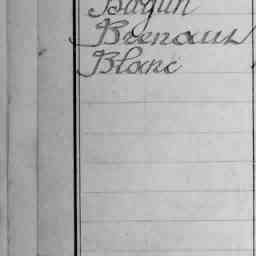 Bagun
Brenaus
Blanc